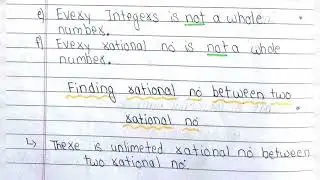 e) Every Integers is not a whole
number.
f) Every rational no is not a whole
number.
Finding rational no between two
rational no
↳ There is unlimeted rational no between
two rational no.